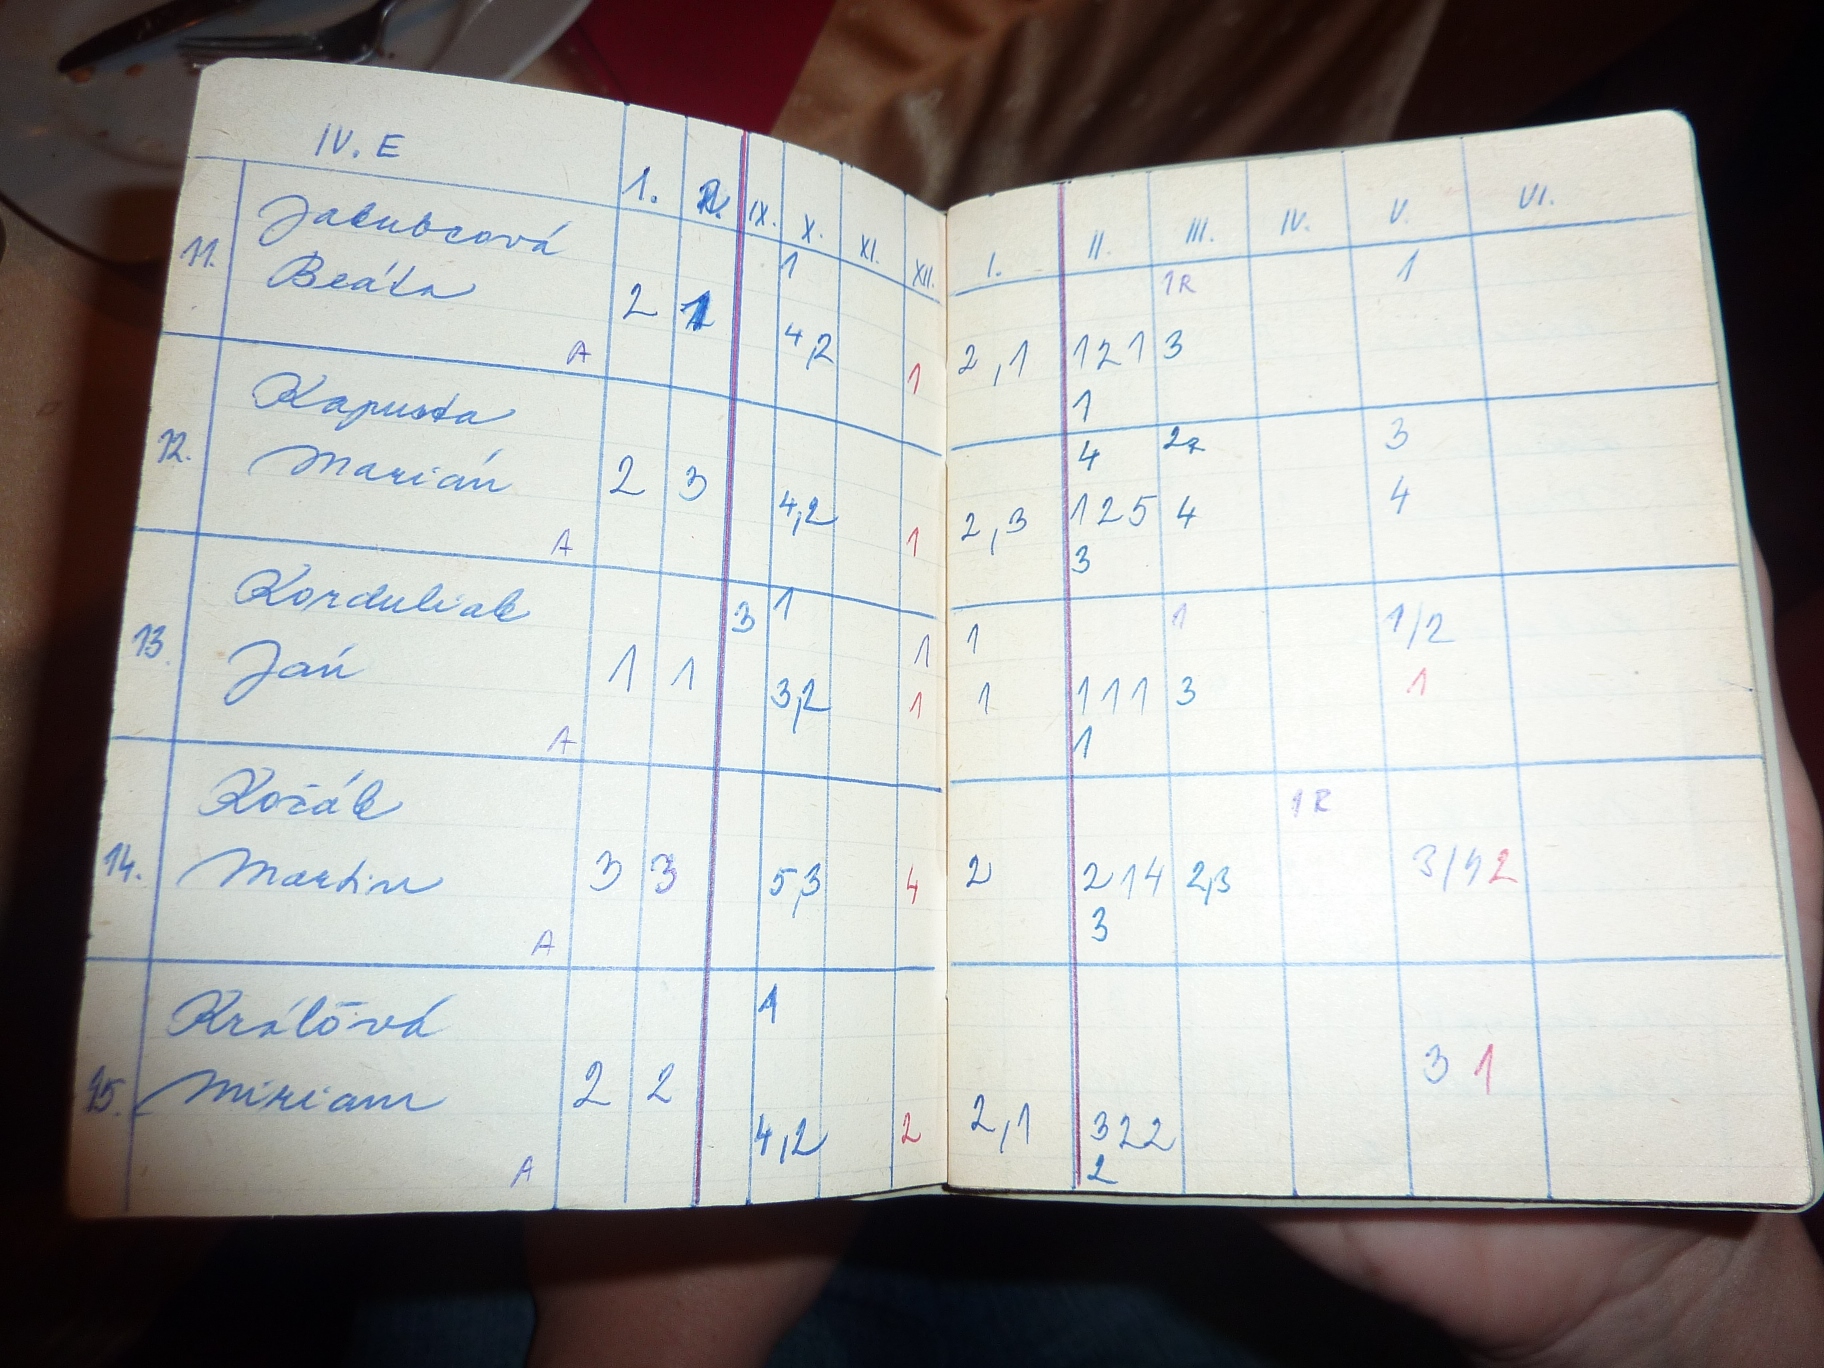 IV. E 1. 2. IX. X. XI. XII. I. II. III. IV. V. VI.
11. Jakubcová 1 1R 1
Beáta 2 1 4,2 1 2,1 1 2 1 3
A 1
12. Kapusta 4 2R 3
Marián 2 3 4,2 1 2,3 1 2 5 4 4
A 3
13. Korduliak 3 1 1 1 1 1/2
Ján 1 1 3,2 1 1 1 1 1 3 1
A 1
14. Kočák 1R
Martin 3 3 5,3 4 2 2 1 4 2,3 3/4 2
A 3
15. Králová 1
Miriam 2 2 3 1
4,2 2 2,1 3 2 2
A 2